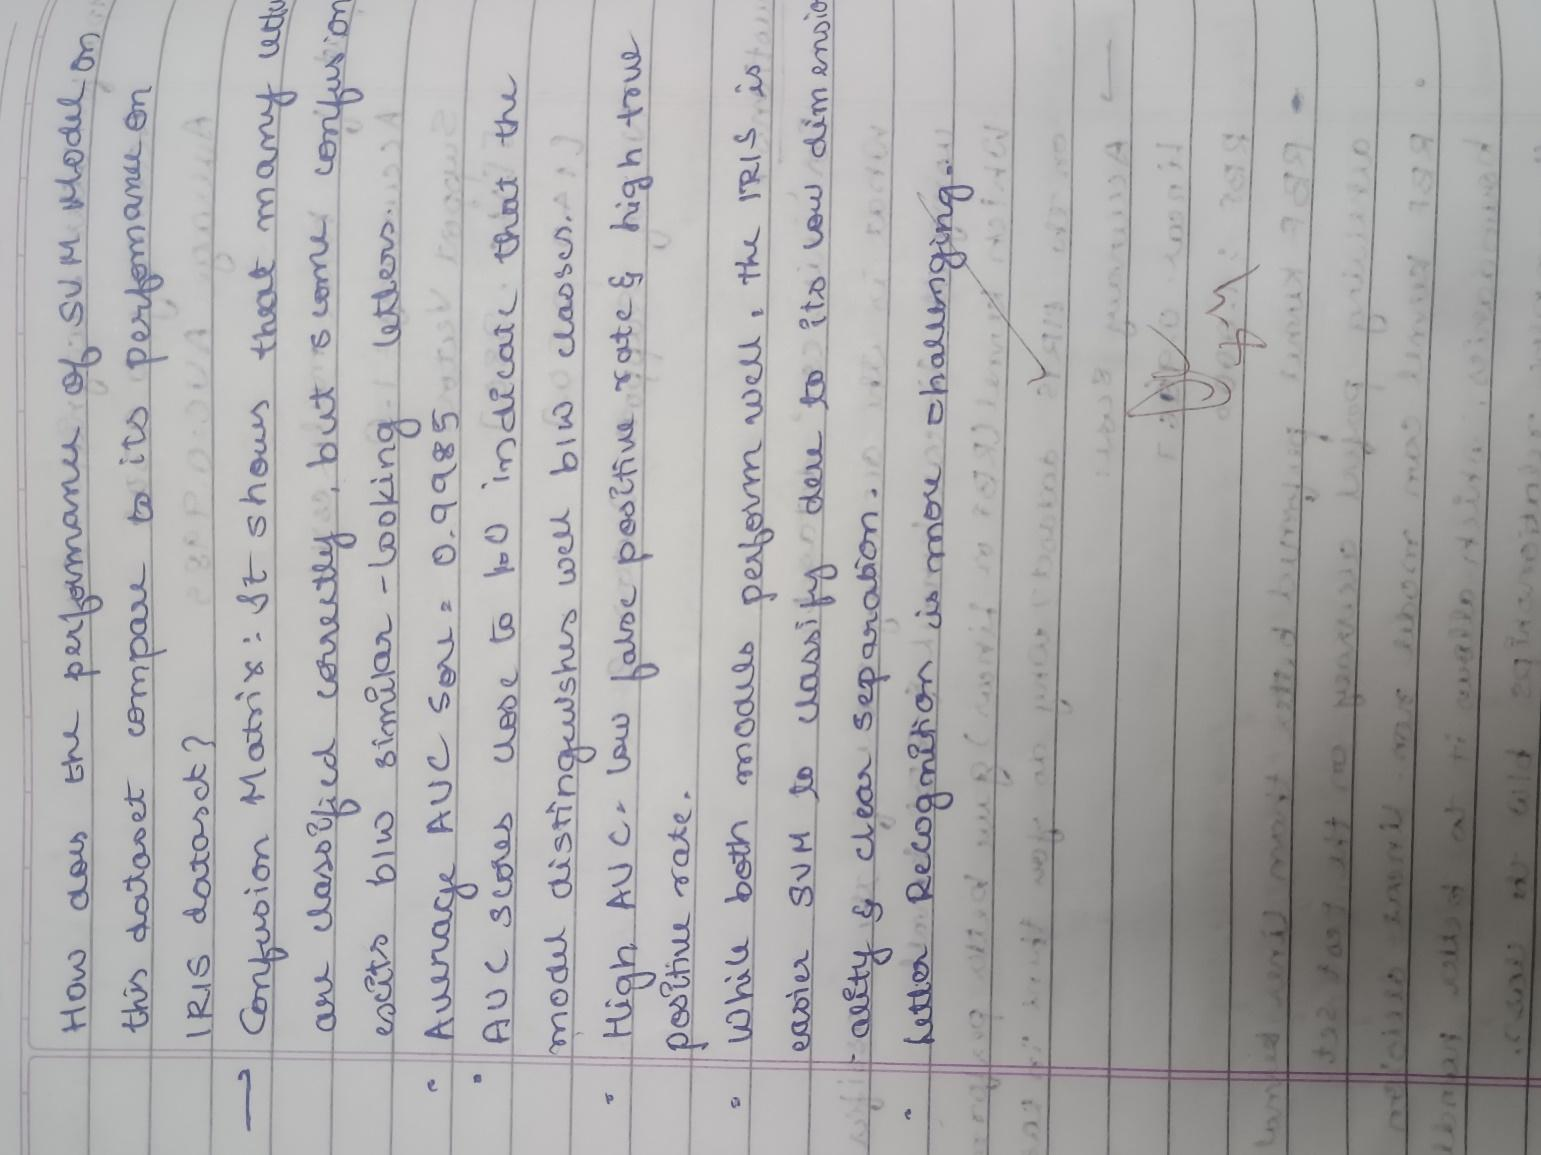 How does the performance of SVM Model on
this dataset compare to its perfomance on
IRIS dataset?
→ Confusion Matrix : It shows that many
are classified correctly, but some confusion
exits b/w similar-looking letters.
• Average AUC Sore = 0.9985
• AUC scores close to 1.0 indicate that the
model distinguishes well b/w classes.
• High AUC - low false positive rate & high true
positive rate.
• While both models perform well, the IRIS is
easier SVM to classify due to its low dimensio
-ality & clear separation.
• Letter Recognition is more challenging.